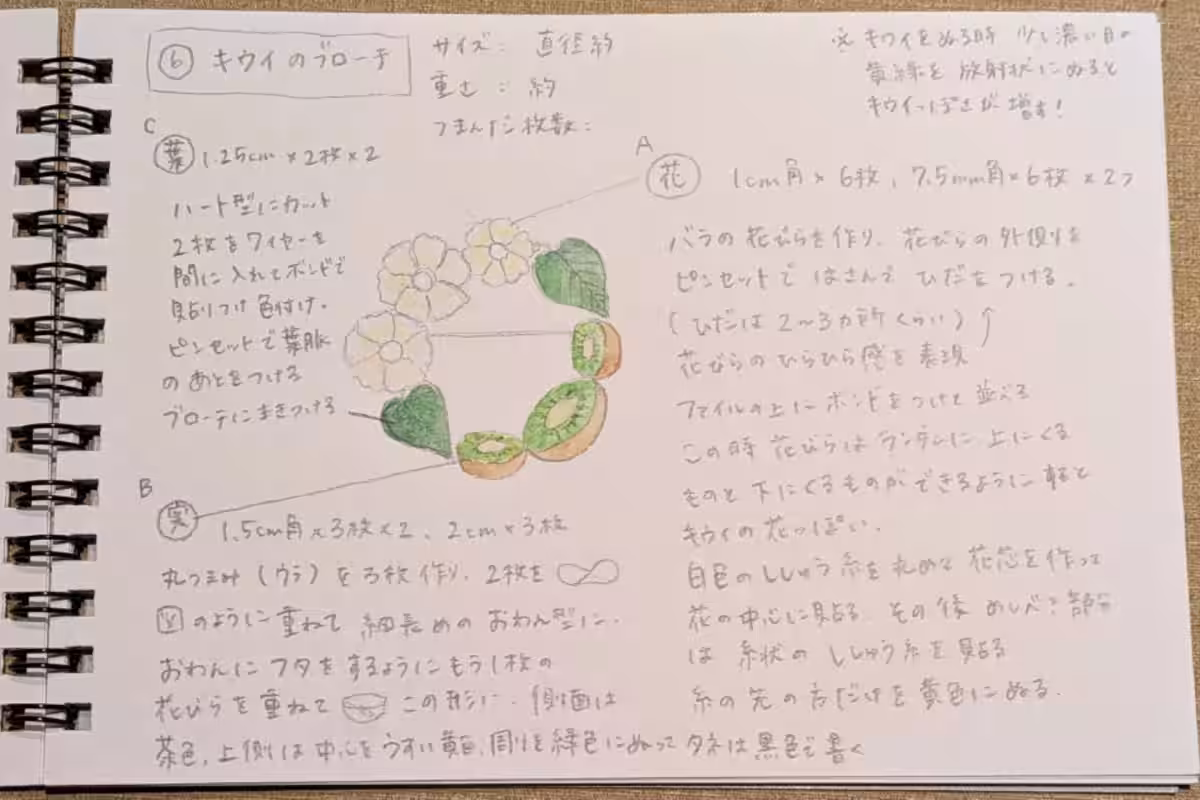 ⑥ キウイのブローチ
サイズ: 直径約
重さ: 約
つまんだ枚数:
※ キウイをぬる時 少し濃い目の
黄緑を放射状にぬると
キウイっぽさが増す!
C
葉 1.25cm×2枚×2
ハート型にカット
2枚をワイヤーを
間に入れてボンドで
貼りつけ色付け.
ピンセットで葉脈
のあとをつける
ブローチにまきつける
A
花 1cm角×6枚、7.5mm角×6枚×2つ
バラの花びらを作り、花びらの外側を
ピンセットではさんで ひだをつける.
(ひだは2〜3カ所くらい)
花びらのひらひら感を表現
ファイルの上にボンドをつけて並べる
この時 花びらはランダムに上にくる
ものと下にくるものができるように
キウイの花っぽい.
白色のししゅう糸を丸めて花芯を作って
花の中心に貼る. その後 めしべ?部分
は 糸状の ししゅう糸を貼る
糸の先の方だけを黄色にぬる.
B
実 1.5cm角×3枚×2、2cm×3枚
丸つまみ(ウラ)を3枚作り、2枚を
のように重ねて 細長めのおわん型に.
おわんにフタをするようにもう1枚の
花びらを重ねて この形に. 側面は
茶色、上側は中心をうすい黄色、周りを緑色にぬって タネは黒色で書く